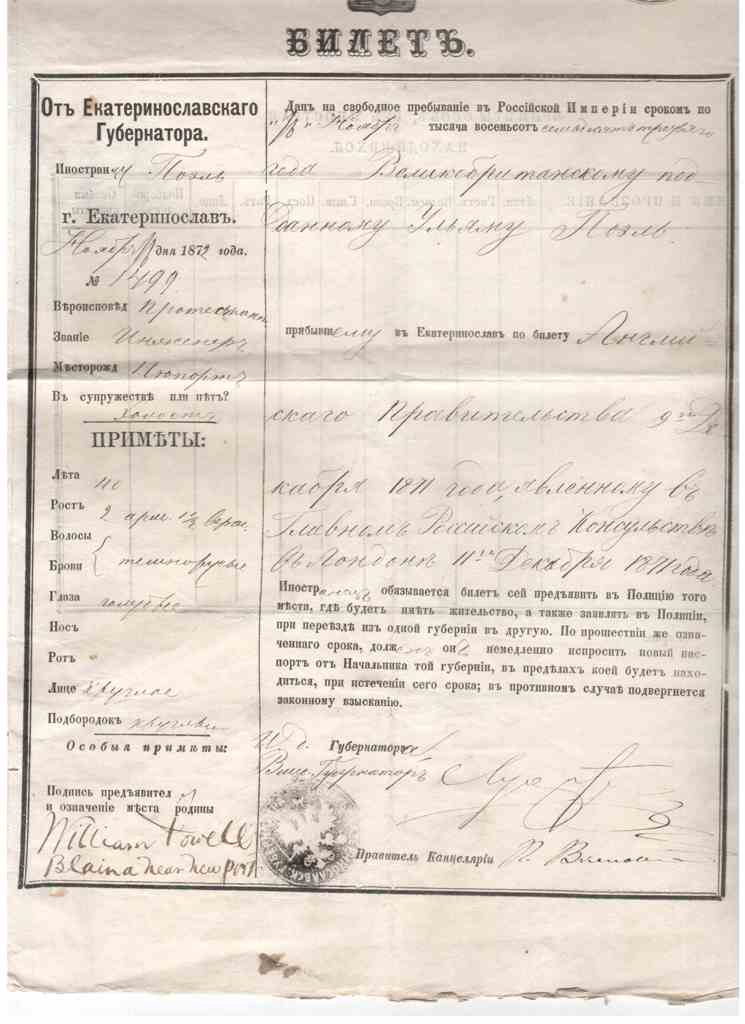 БИЛЕТЪ.
Отъ Екатеринославскаго
Губернатора.
Иностранцу Поэль
г. Екатеринославъ.
Ноября дня 1872 года.
№ 1499
Вѣроисповѣд Протестант
Званіе Инженеръ
Мѣсторожд Нюпортъ
Въ супружествѣ или нѣтъ?
Холостъ
ПРИМѢТЫ:
Лѣта 40
Ростъ 2 арш.
Волосы
Брови темнорусые
Глаза голубые
Носъ
Ротъ
Лице круглое
Подбородокъ круглый
Особыя примѣты:
Подпись предъявител
и означеніе мѣста родины
William Powell
Blaina near new port
Данъ на свободное пребываніе въ Россійской Имперіи срокомъ по
Ноябр тысяча восемьсотъ семьдесятъ третьяго
года Великобританскому под-
данному Ульяму Поэль
прибывшему въ Екатеринославъ по билету Англій-
скаго Правительства 9го Де
кабря 1871 года, явленному въ
Главномъ Россійскомъ Консульствѣ
въ Лондонѣ 11го Декабря 1871 года
Иностранецъ обязывается билетъ сей предъявить въ Полицію того
мѣста, гдѣ будетъ имѣть жительство, а также заявлять въ Полиціи,
при переѣздѣ изъ одной губерніи въ другую. По прошествіи же озна-
ченнаго срока, долженъ онъ немедленно испросить новый пас-
портъ отъ Начальника той губерніи, въ предѣлахъ коей будетъ нахо-
диться, при истеченіи сего срока; въ противномъ случаѣ подвергнется
законному взысканію.
И. д. Губернатора
Вице-Губернаторъ
Правитель Канцеляріи